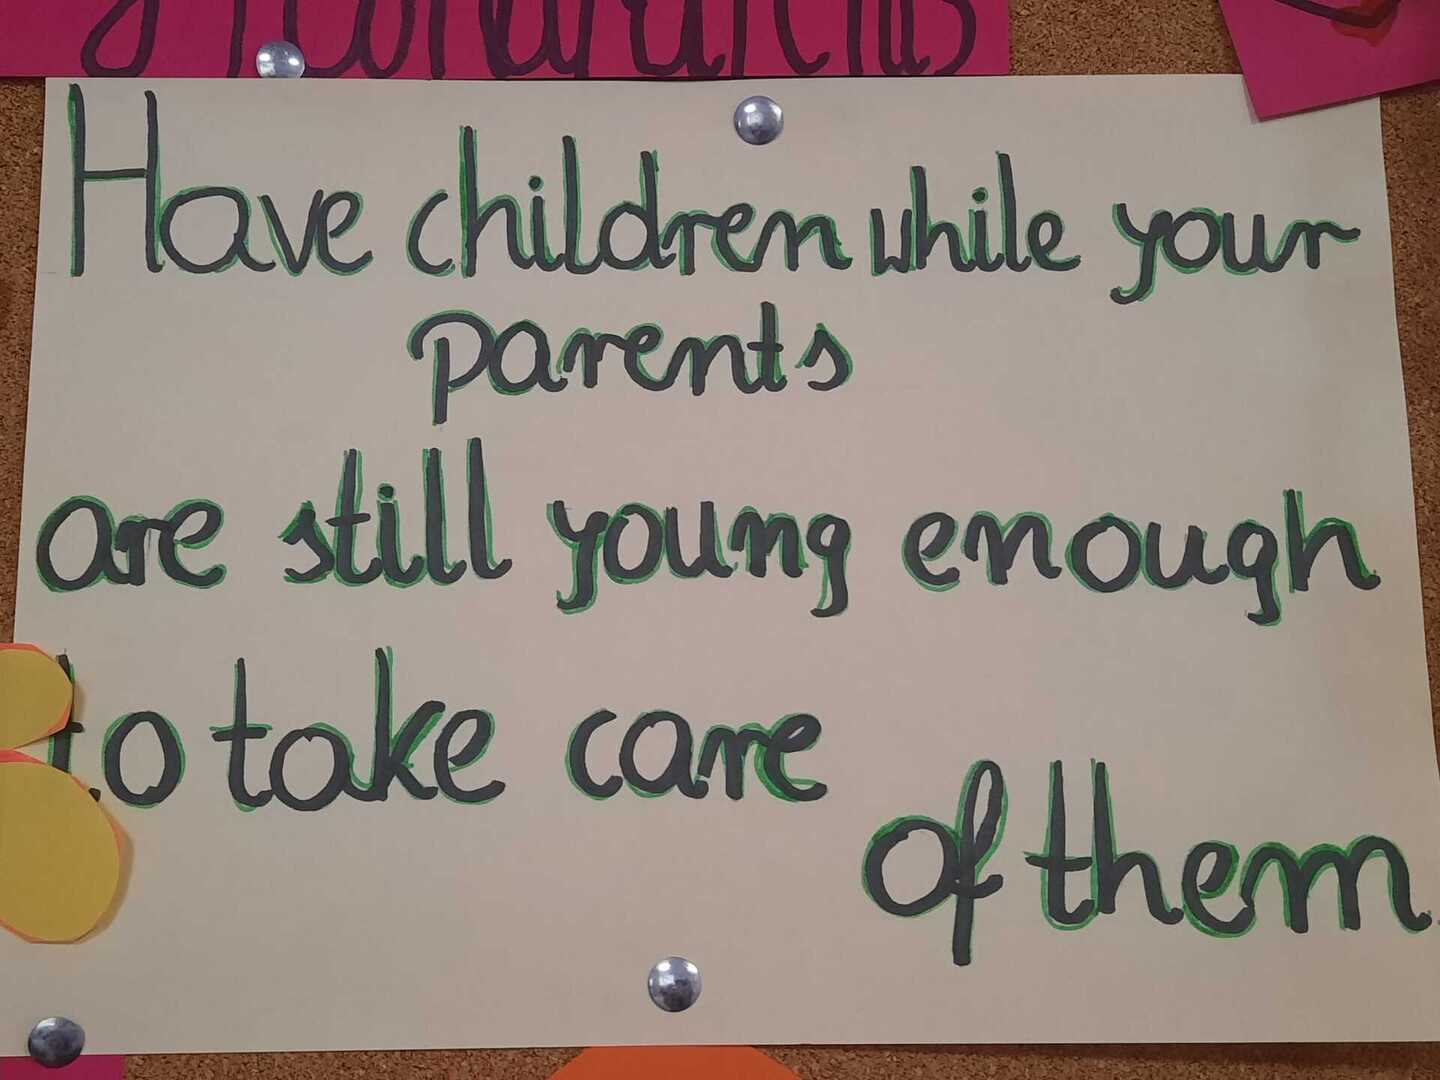 Have children while your
parents
are still young enough
to take care
of them.